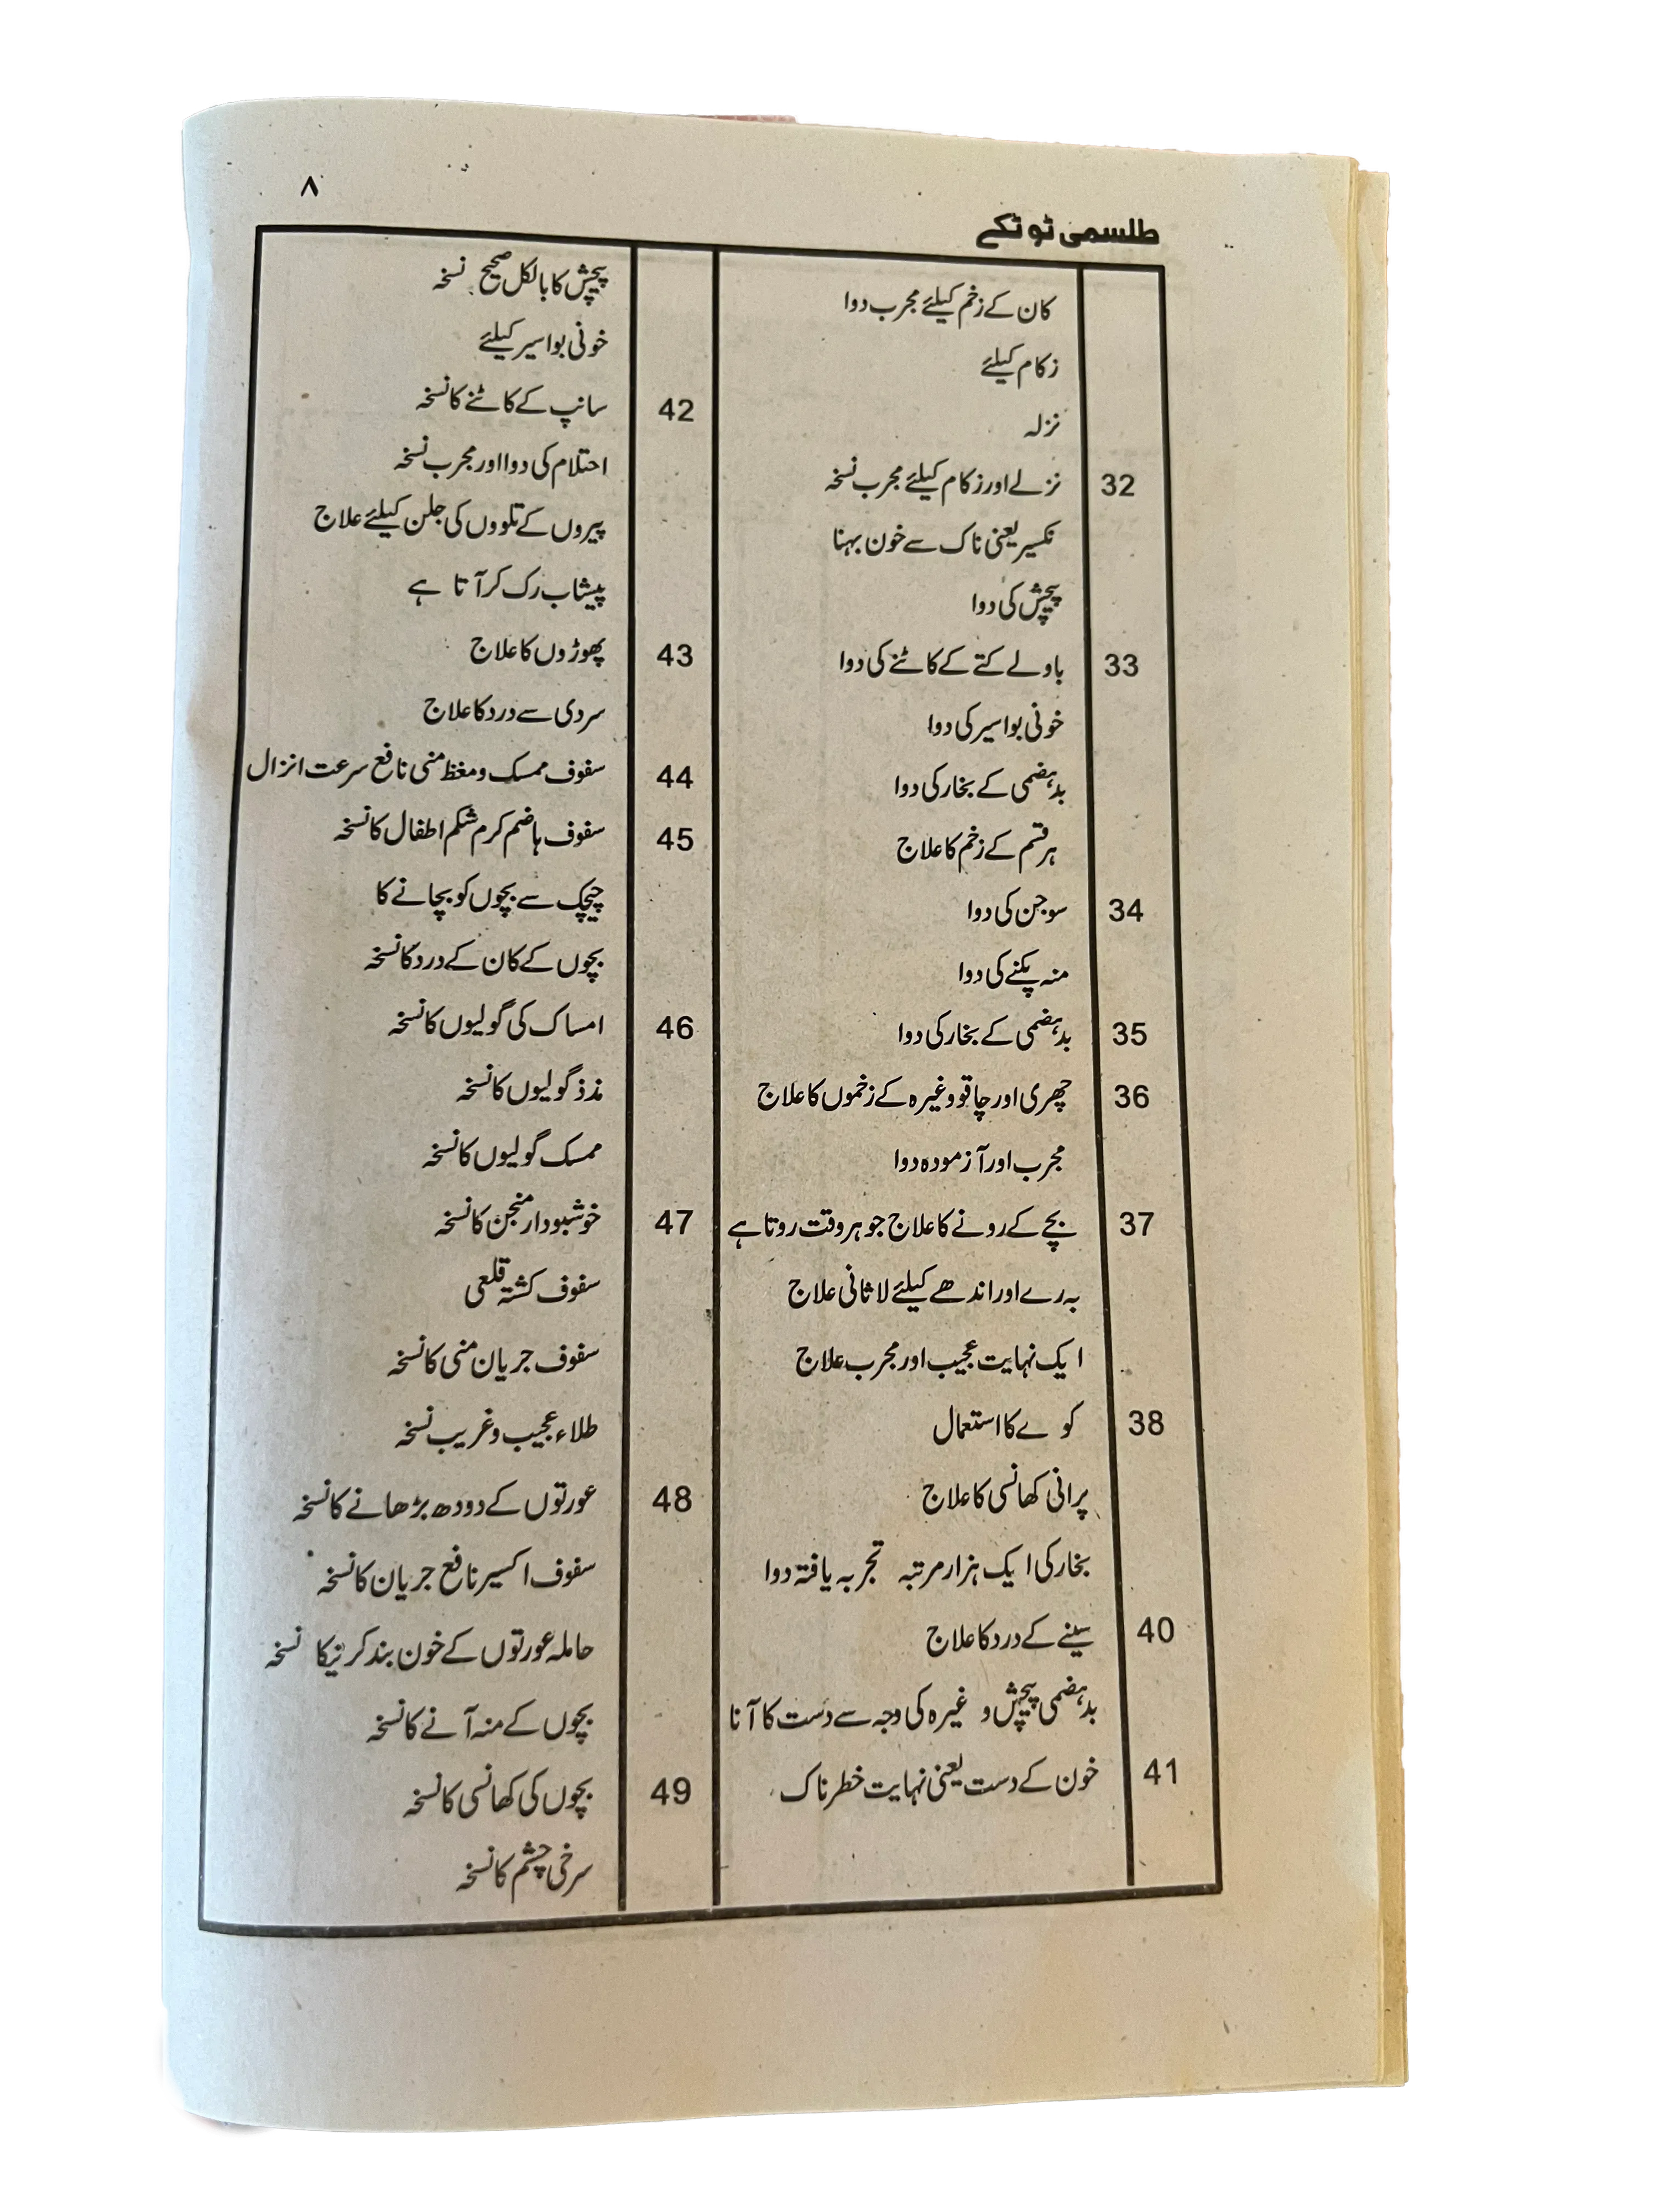 ۸
طلسمی ٹوٹکے
کان کے زخم کیلئے مجرب دوا
زکام کیلئے
نزلہ
32 نزلے اور زکام کیلئے مجرب نسخہ
نکسیر یعنی ناک سے خون بہنا
پیچش کی دوا
33 باولے کتے کے کاٹنے کی دوا
خونی بواسیر کی دوا
بدہضمی کے بخار کی دوا
ہر قسم کے زخم کا علاج
34 سوجن کی دوا
منہ پکنے کی دوا
35 بدہضمی کے بخار کی دوا
36 چھری اور چاقو وغیرہ کے زخموں کا علاج
مجرب اور آزمودہ دوا
37 بچے کے رونے کا علاج جو ہر وقت روتا ہے
بہرے اور اندھے کیلئے لاثانی علاج
ایک نہایت عجیب اور مجرب علاج
38 کوے کا استعمال
پرانی کھانسی کا علاج
بخار کی ایک ہزار مرتبہ تجربہ یافتہ دوا
40 سینے کے درد کا علاج
بدہضمی پیچش و غیرہ کی وجہ سے دست کا آنا
41 خون کے دست یعنی نہایت خطرناک
پیچش کا بالکل صحیح نسخہ
خونی بواسیر کیلئے
42 سانپ کے کاٹنے کا نسخہ
احتلام کی دوا اور مجرب نسخہ
پیروں کے تلووں کی جلن کیلئے علاج
پیشاب رک کر آتا ہے
43 پھوڑوں کا علاج
سردی سے درد کا علاج
44 سفوف ممسک و مغظ منی نافع سرعت انزال
45 سفوف ہاضم کرم شکم اطفال کا نسخہ
چیچک سے بچوں کو بچانے کا
بچوں کے کان کے درد کا نسخہ
46 امساک کی گولیوں کا نسخہ
مذذ گولیوں کا نسخہ
ممسک گولیوں کا نسخہ
47 خوشبودار منجن کا نسخہ
سفوف کشتہ قلعی
سفوف جریان منی کا نسخہ
طلاء عجیب و غریب نسخہ
48 عورتوں کے دودھ بڑھانے کا نسخہ
سفوف اکسیر نافع جریان کا نسخہ
حاملہ عورتوں کے خون بند کرنیکا نسخہ
بچوں کے منہ آنے کا نسخہ
49 بچوں کی کھانسی کا نسخہ
سرخی چشم کا نسخہ